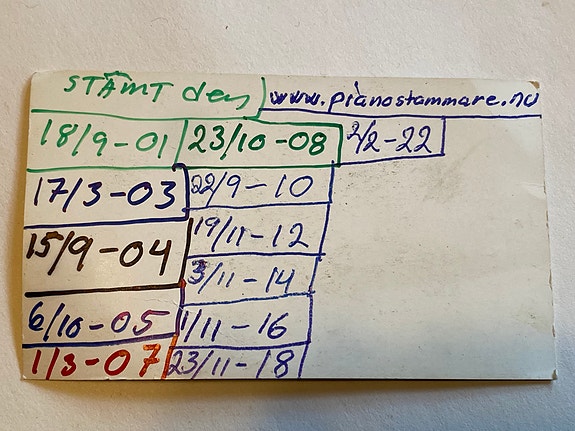 STÄMT den www.pianostammare.nu
18/9-01 23/10-08 2/2-22
17/3-03 22/9-10
15/9-04 19/11-12
3/11-14
6/10-05 1/11-16
1/3-07 23/11-18